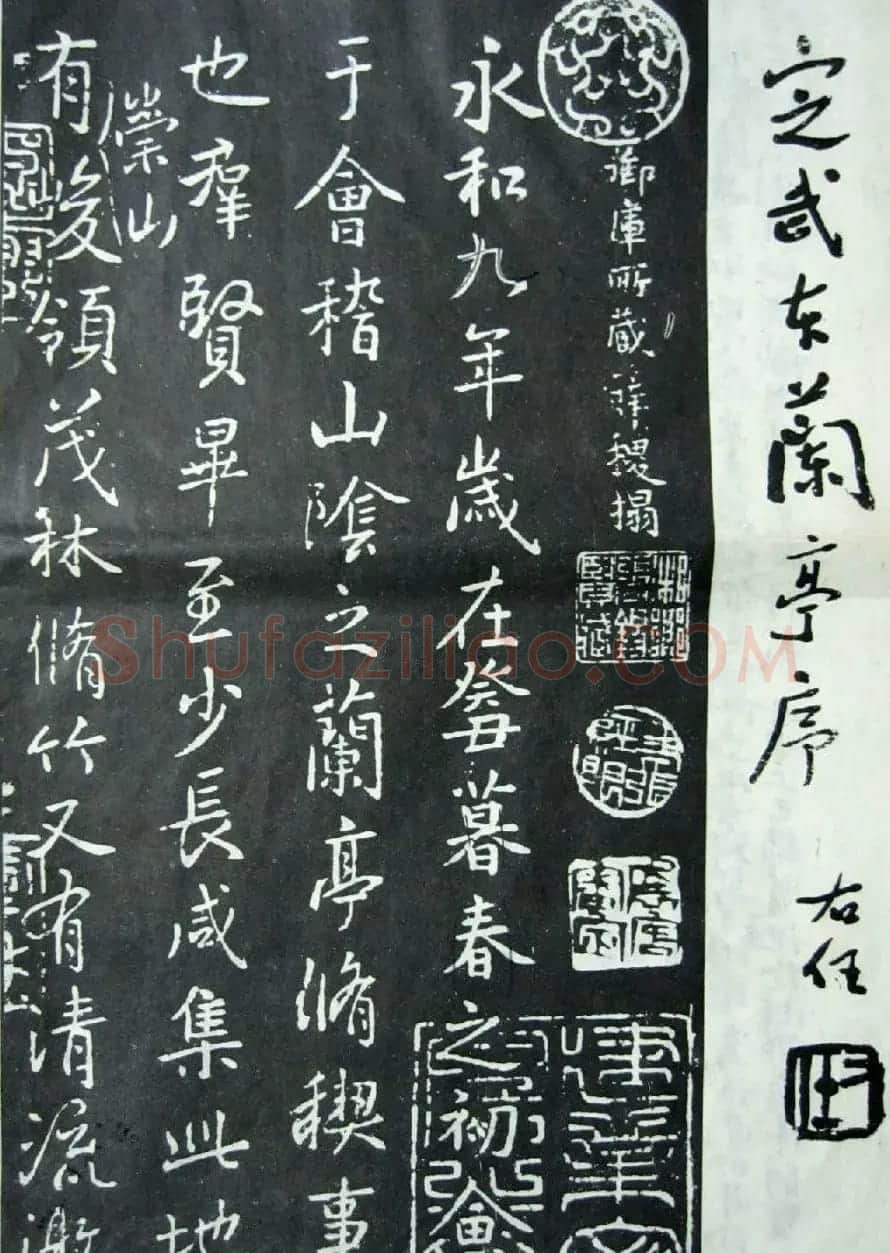 定武本蘭亭序
右任
御庫所藏薛稷搨
永和九年歲在癸丑暮春之初會
于會稽山陰之蘭亭脩稧事
也群賢畢至少長咸集此地
崇山
有峻領茂林脩竹又有清流激
Shufaziliao.COM